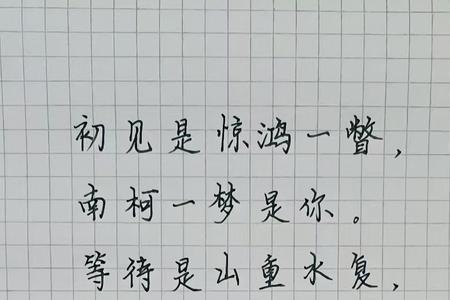 初见是惊鸿一瞥，
南柯一梦是你。
等待是山重水复，